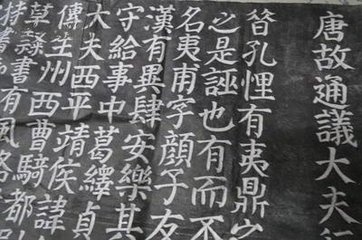 唐故通議大夫行
昔孔悝有夷鼎
之是誣也有而不
名夷甫字顏子友
漢有異肆安樂其
守給事中葛繹貞
大夫西平靖侯諱
傳生州西曹騎都
草隸書有風格
特書